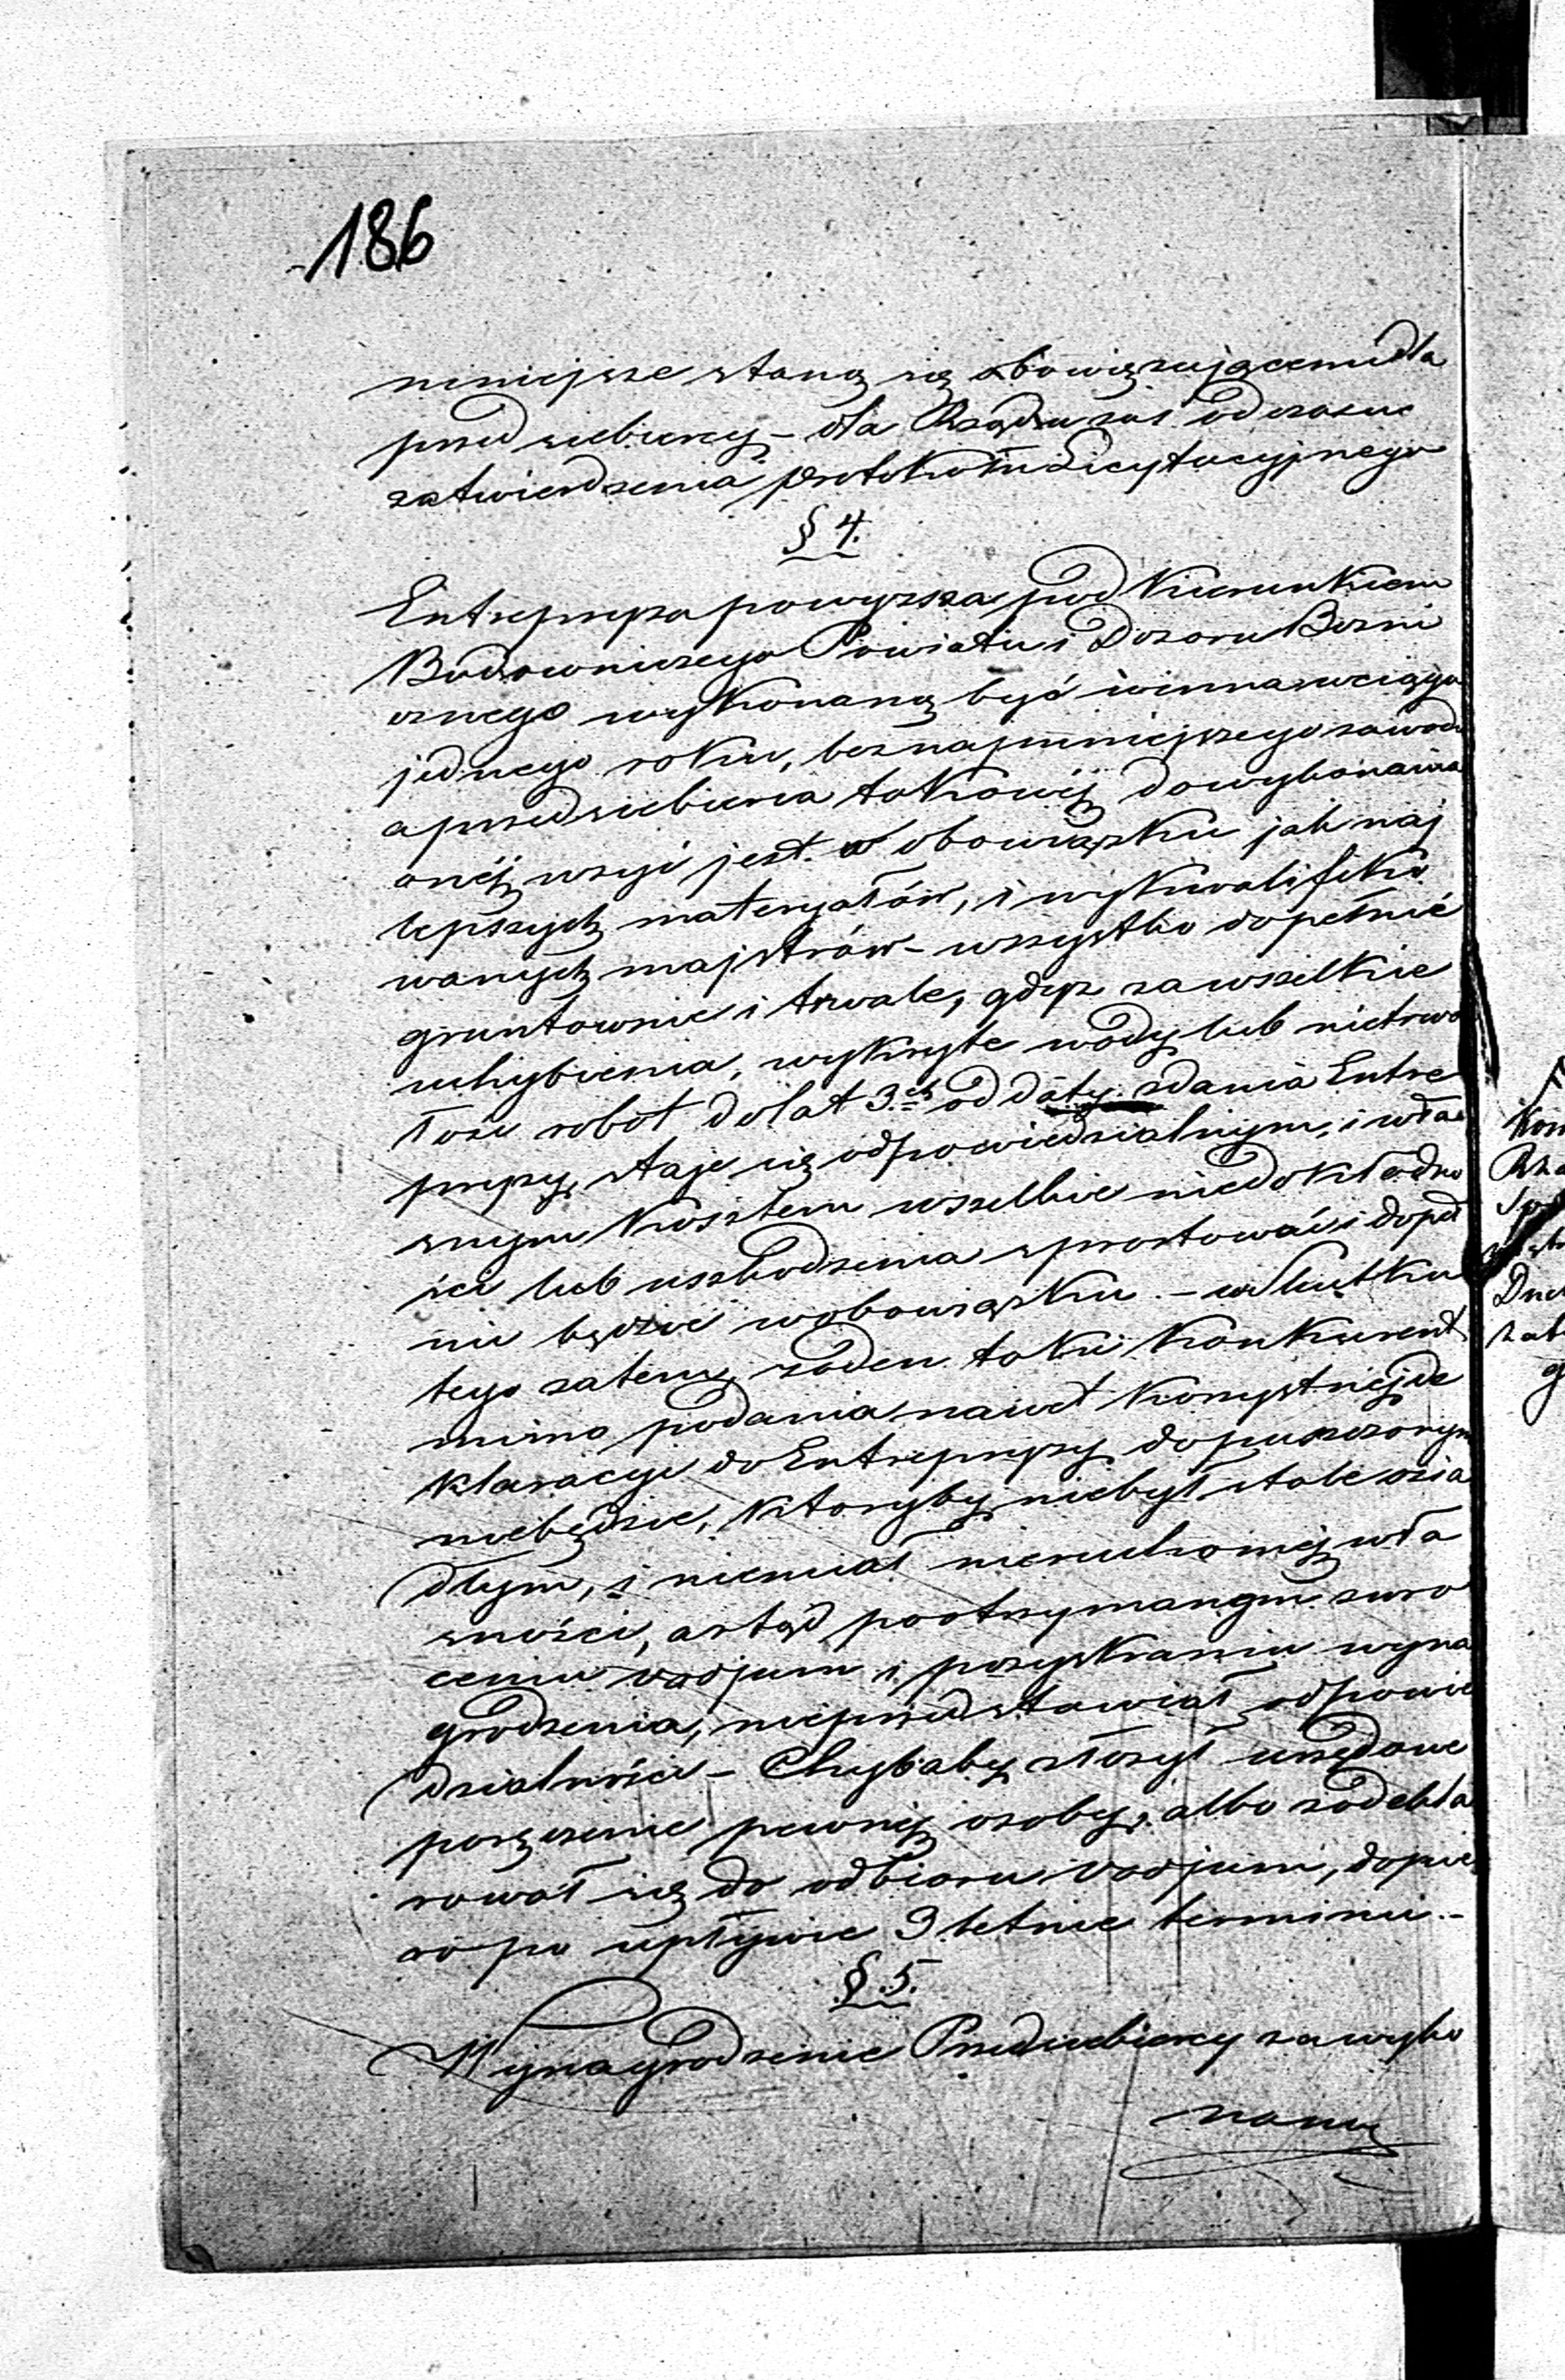 186
niniejsze staną się obowięzującemi dla
przedsiebiercy – dla Rządu zaś od czasu
zatwierdzenia protokółu Licytacyjnego
§ 4.
Entrepryza powyższa pod Kierunkiem
Budowniczego Powiatu i Dozoru Bożni
cznego wykonaną być winna w ciągu
jednego roku, bez najmniejszego zawodu
a przedsiebierca takowéj do wykonania
onéj użyć jest w obowiązku jak naj
lepszych materyałów, i wykwalifiko
wanych majstrów – wszystko dopełnić
gruntownie i trwale, gdyż za wszelkie
uchybienia, wykryte wady lub nietrwa
łość robót do lat 3ch od daty zdania Entre
pryzy, staje się odpowiedzialnym, i wła
snym Kosztem wszelkie niedokładno
ści lub uszkodzenia sprostować i dopeł
nić będzie w obowiązku. – w skutku
tego zatem, żaden taki Konkurent
mimo podania nawet Korzystnéj de
klaracyi do Entrepryzy dopuszczonym
niebędzie, Któryby niebył stale osia
dłym, i niemiał nieruchoméj wła
sności, a ztąd po otrzymanym zwro
ceniu vadjum i pozyskaniu wyna
grodzenia, nieprzedstawiał odpowie
dzialności – Chybaby złożył urzędowe
poręczenie pewnéj osoby, albo zadekla
rował się do odbioru vadjum, dopie
ro po upływie 3 letnie terminu. –
§ 5.
Wynagrodzenie Przedsiebiercy za wyko
naną